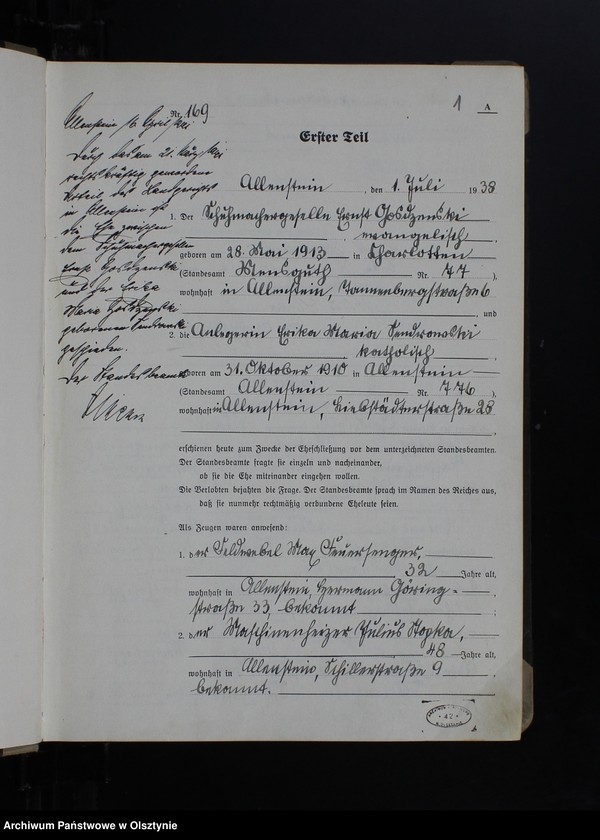 1 A
Nr. 169
Erster Teil
Allenstein, den 1. Juli 1938
1. Der Schuhmachergeselle Ernst
evangelisch,
geboren am 28. Mai 1913 in Charlotten
(Standesamt Mensguth Nr. 77),
wohnhaft in Allenstein, Tannenbergstraße 6
, und
2. die Anlegerin Erika Maria Sendrowski
katholisch,
geboren am 31. Oktober 1910 in Allenstein
(Standesamt Allenstein Nr. 776),
wohnhaft in Allenstein, Liebstädterstraße 28
erschienen heute zum Zwecke der Eheschließung vor dem unterzeichneten Standesbeamten.
Der Standesbeamte fragte sie einzeln und nacheinander,
ob sie die Ehe miteinander eingehen wollen.
Die Verlobten bejahten die Frage. Der Standesbeamte sprach im Namen des Reiches aus,
daß sie nunmehr rechtmäßig verbundene Eheleute seien.
Als Zeugen waren anwesend:
1. der Feldwebel Max Feuersenger,
32 Jahre alt,
wohnhaft in Allenstein, Hermann Göring-
straße 33, bekannt;
2. der Maschinenheizer Julius Stopka,
48 Jahre alt,
wohnhaft in Allenstein, Schillerstraße 9,
bekannt.
Allenstein 16. April
Durch das am 21. März
rechtskräftig gewordene
Urteil des Landgerichts
in Allenstein ist
die Ehe zwischen
dem Schuhmachergesellen
Ernst
und der Erika
Maria
geborenen Sendrowski
geschieden.
Der Standesbeamte
42
Archiwum Państwowe w Olsztynie